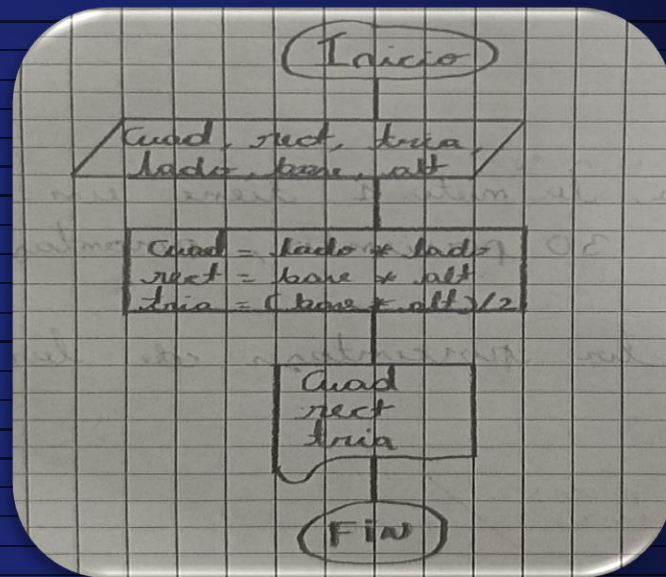 Inicio
Cuad, rect, tria,
lado, base, alt
Cuad = lado * lado
rect = base * alt
tria = (base * alt)/2
Cuad
rect
tria
Fin